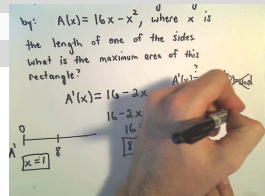 by: A(x) = 16x - x², where x is
the length of one of the sides.
What is the maximum area of this
rectangle?
A'(x) = 16 - 2x
16 - 2x
16 =
8
0
A'
8
x = 1